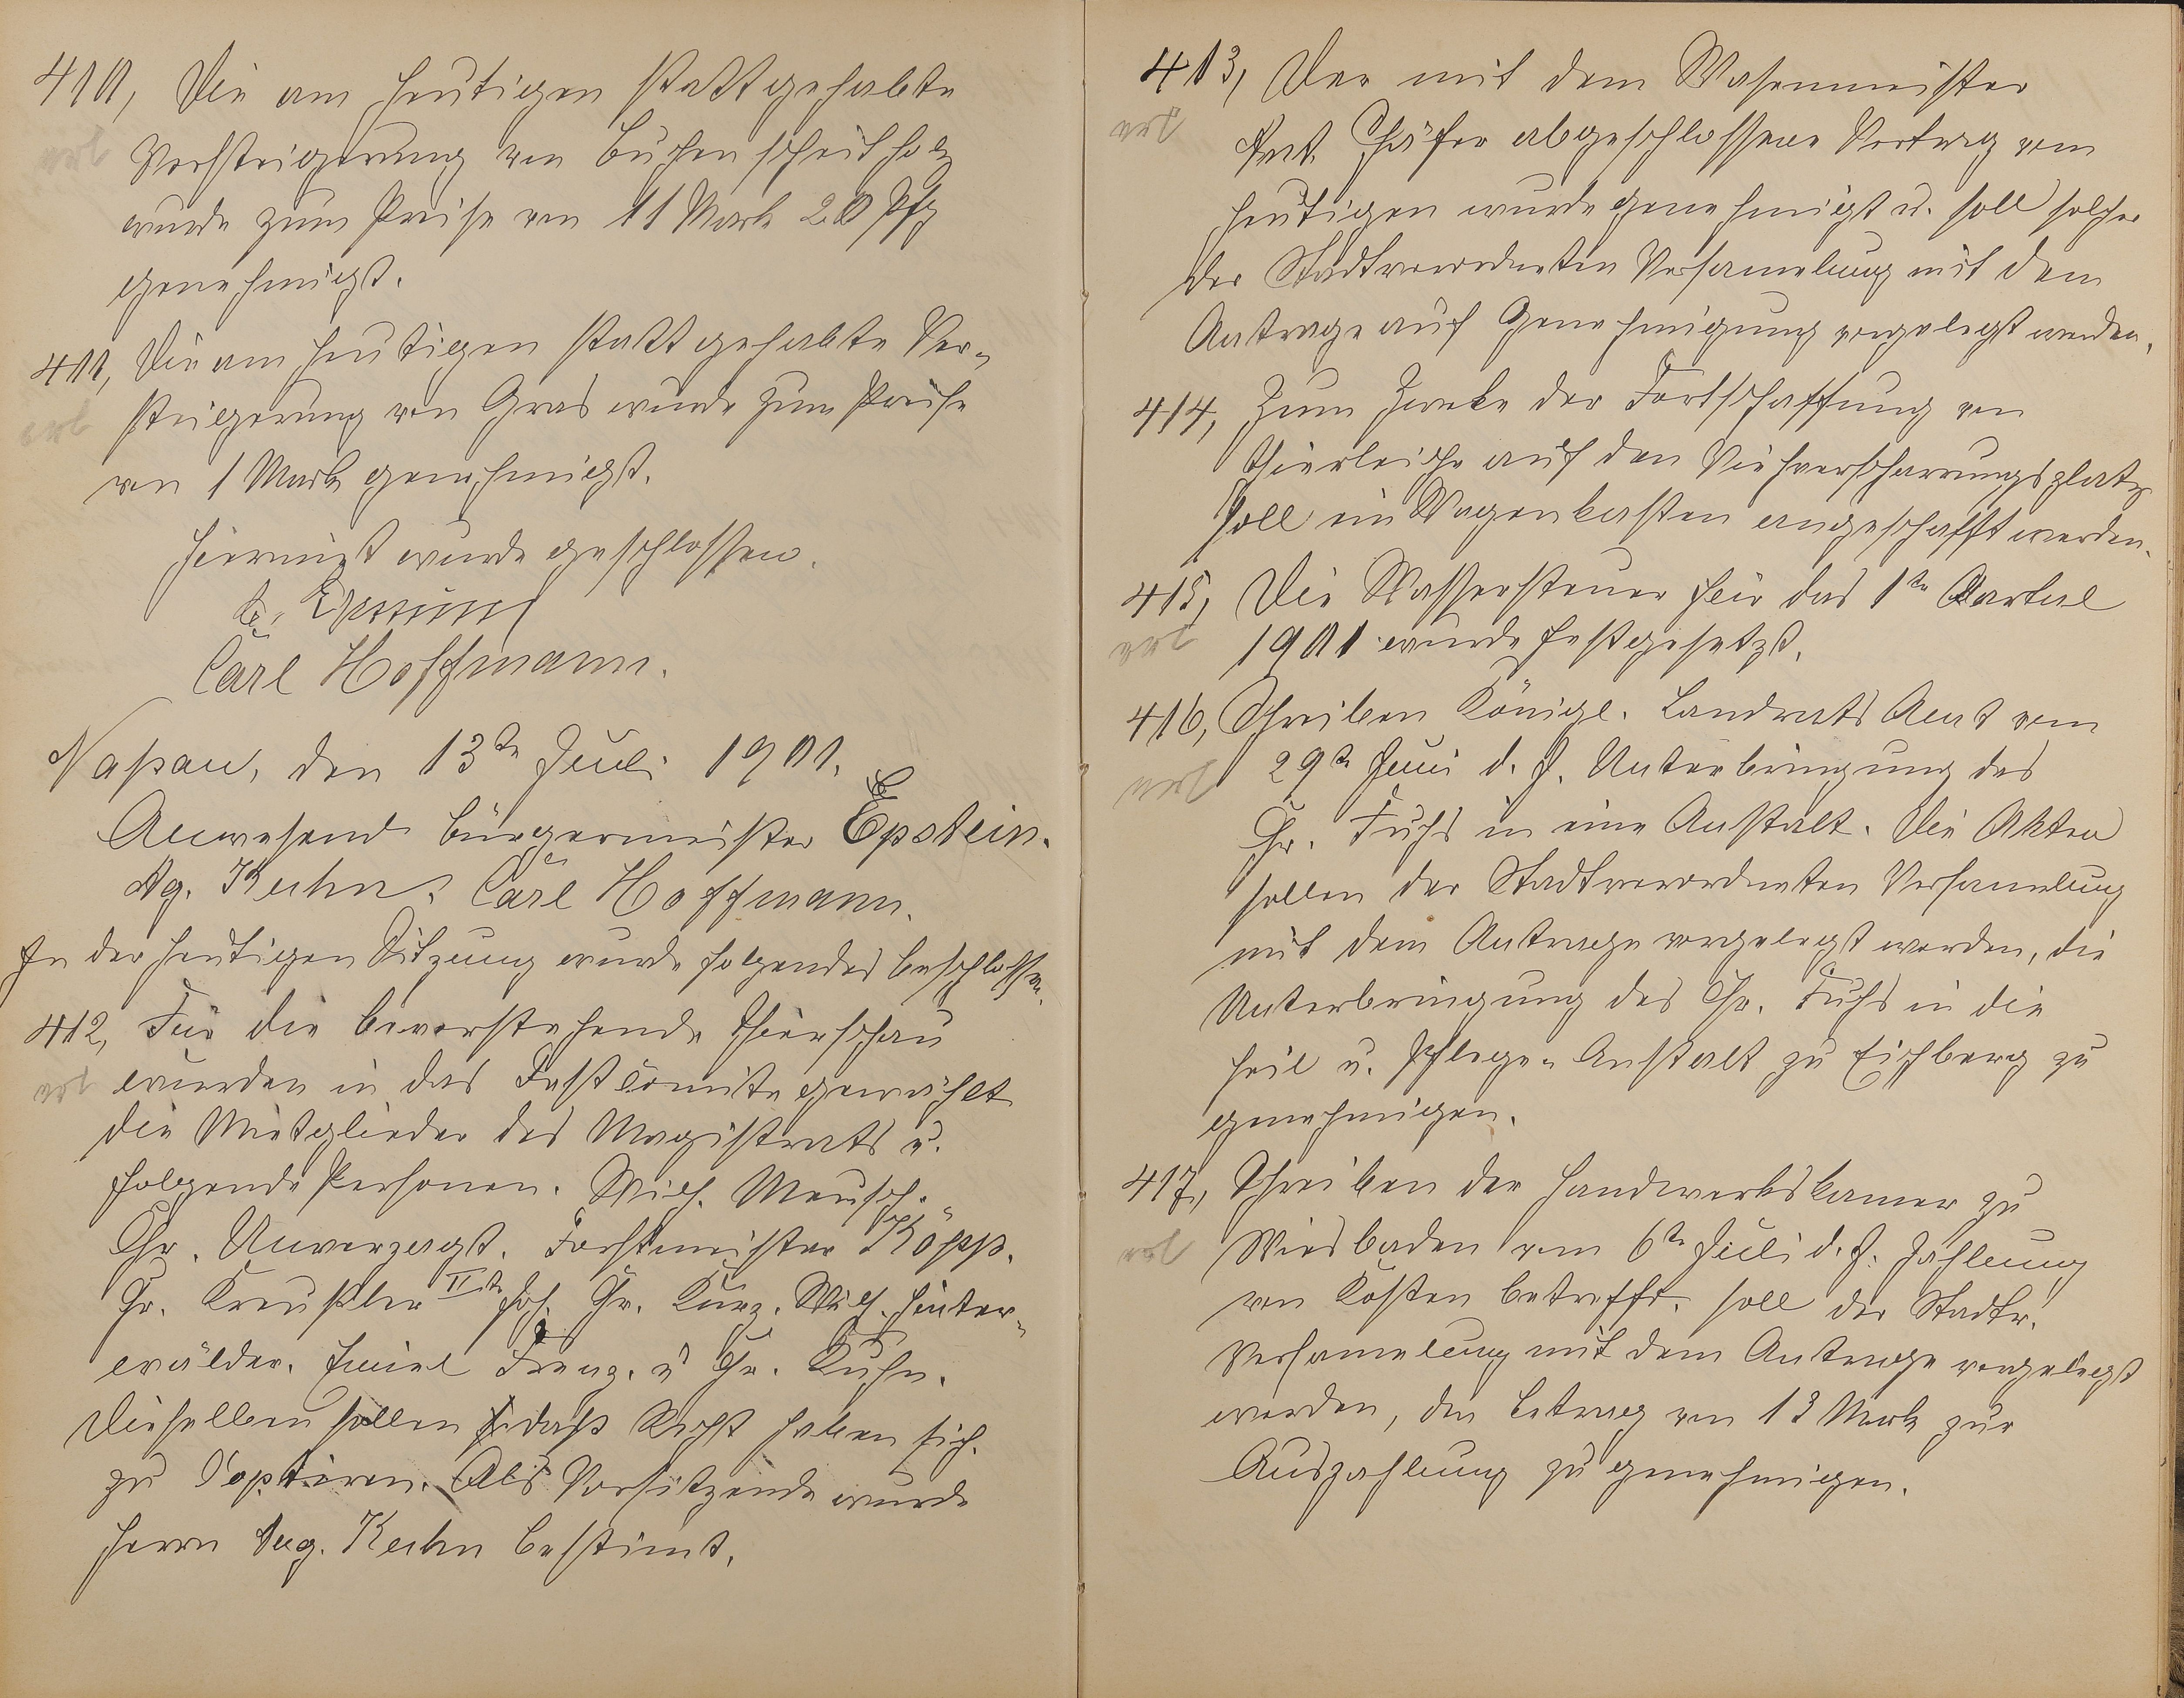 410, Die am heutigen stattgehabte
erl Versteigerung von Buchenscheitholz
wurde zum Preise von 11 Mark 20 Pfg
genehmigt.
411, Die am heutigen stattgehabte Ver-
erl steigerung von Gras wurde zum Preise
von 1 Mark genehmigt.
Hiermit wurde geschlossen.
Carl Hoffmann.
Naßau, den 13te Juli 1901.
Anwesend Bürgermeister Epstein.
Ag. Kuhn. Carl Hoffmann.
In der heutigen Sitzung wurde folgendes beschlossen.
412, Für die bevorstehende Thierschau
erl wurden in das Festcomite gewählt
die Mitglieder des Magistrats u.
folgende Personen. Wilh. Mensch.
Chr. Unverzagt. Forstmeister Köpp.
Chr. Kreußler IIte Joh. Gr. Kurz. Wilh. Hinter-
wälder. Emiel Franz. u Chr. Kuhn.
Dieselben sollen daß Recht haben sich
zu Coptiren. Als Vorsitzende wurde
Herrn Aug. Kuhn bestimt.
413, Der mit dem Wasenmeister
erl Ant. Schäfer abgeschlossene Vertrag vom
heutigen wurde genehmigt u. soll solcher
der Stadtverordneten Versamelung mit dem
Antrage auf Genehmigung vorgelegt werden.
414, Zum Zweke der Fortschaffung von
Thierleiche auf den Viehverscharrungsplatz
soll ein Wagenkasten angeschafft werden.
415, Die Wassersteuer für das 1te Quartal
erl 1901 wurde festgesetzt.
416, Schreiben Königl. Landrats Amt vom
erl 29te Juni d. J. Unterbringung des
Chr. Fuchs in eine Anstalt. Die Akten
sollen der Stadtverordneten Versamelung
mit dem Antrage vorgelegt werden, die
Unterbringung des Chr. Fuchs in die
Heil u. Pflege-Anstalt zu Eichberg zu
genehmigen.
417, Schreiben der Handwerkskamer zu
erl Wiesbaden vom 6te Juli d. J. Zahlung
von Kosten betrefft. soll der Stadtv.
Versamelung mit dem Antrage vorgelegt
werden, den Betrag von 13 Mark zur
Auszahlung zu genehmigen.